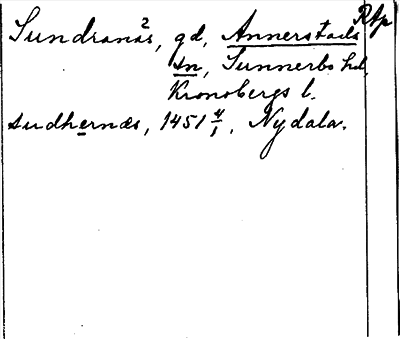 Sundranäs², gd, Annerstads Rbp
sn, Sunnerbo hd,
Kronobergs l.
sudhernæs, 1451 4/1, Nydala.